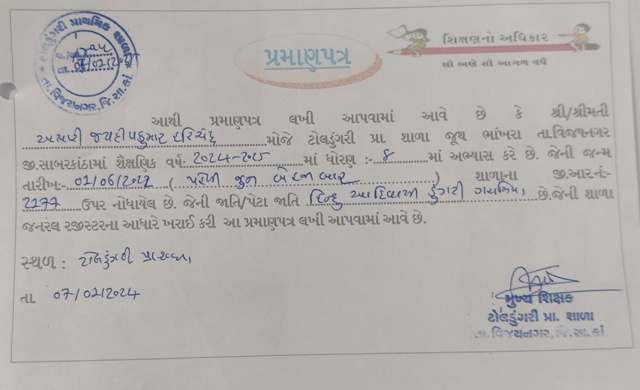 ટોલડુંગરી પ્રાથમિક શાળા
તા. વિજયનગર, જિ.સા.કાં.
પ્રમાણપત્ર
શિક્ષણનો અધિકાર
સૌ ભણે સૌ આગળ વધે
આથી પ્રમાણપત્ર લખી આપવામાં આવે છે કે શ્રી/શ્રીમતી
અસારી જયદીપકુમાર હરિચંદ્ર મોજે ટોલડુંગરી પ્રા. શાળા જૂથ ભાંખરા તા.વિજયનગર
જી.સાબરકાંઠામાં શૈક્ષણિક વર્ષ: ૨૦૨૪-૨૦૨૫ માં ધોરણ :- ૪ માં અભ્યાસ કરે છે. જેની જન્મ
તારીખ:- 01/06/ ( પહેલી જુન બે હજાર ) શાળાના જી.આર.નં:-
2277 ઉપર નોધાયેલ છે. જેની જાતિ/પેટા જાતિ હિન્દુ આદિવાસી ડુંગરી ગરાસિયા છે.જેની શાળા
જનરલ રજીસ્ટરના આધારે ખરાઈ કરી આ પ્રમાણપત્ર લખી આપવામાં આવે છે.
સ્થળ : ટોલડુંગરી પ્રા.શાળા
તા 07/02/2024
મુખ્ય શિક્ષક
ટોલડુંગરી પ્રા. શાળા
તા. વિજયનગર, જિ. સા. કાં.